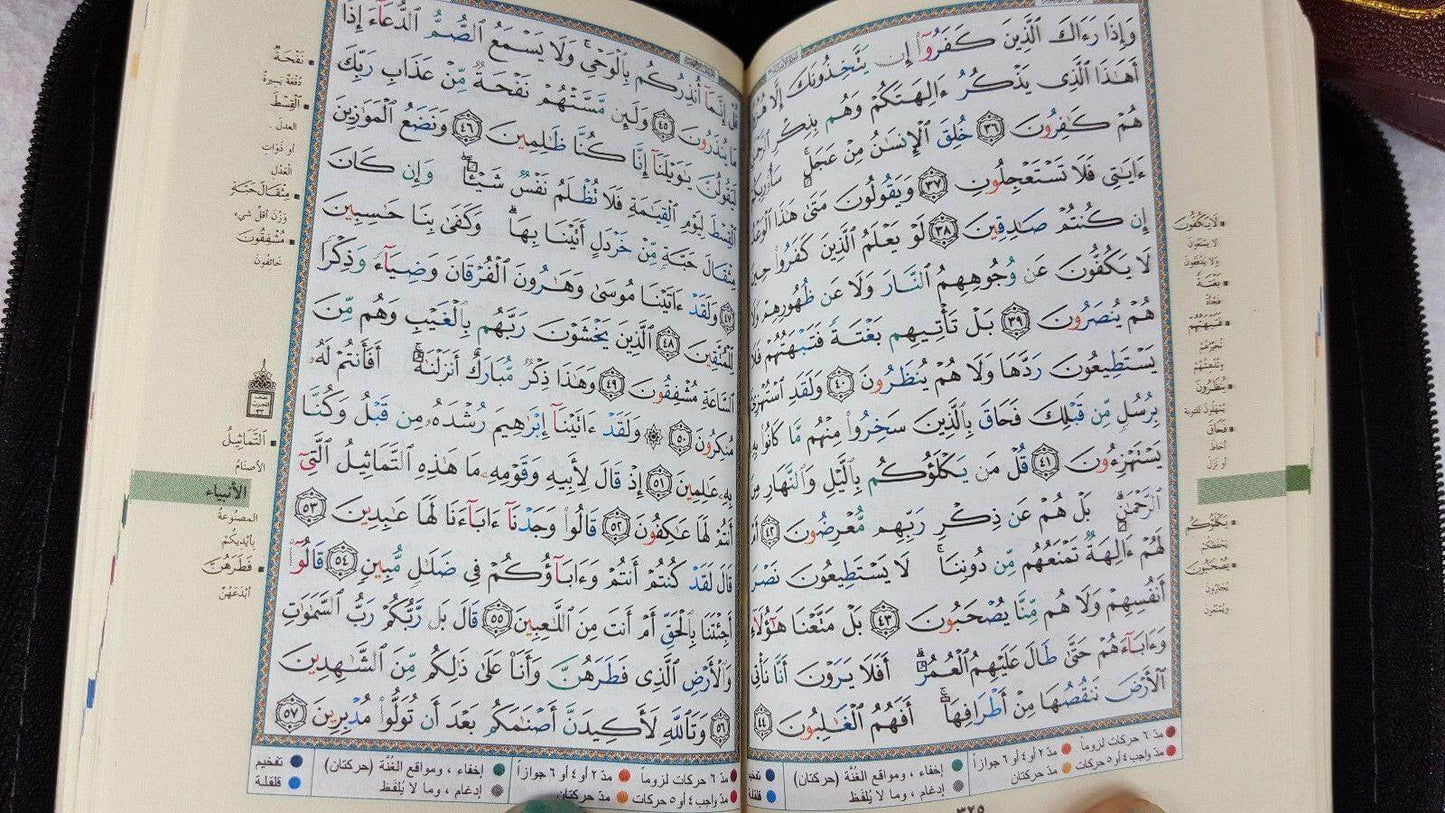 وَإِذَا رَءَاكَ ٱلَّذِينَ كَفَرُوٓا۟ إِن يَتَّخِذُونَكَ إِلَّا
أَهَٰذَا ٱلَّذِى يَذْكُرُ ءَالِهَتَكُمْ وَهُم بِذِكْرِ
هُمْ كَٰفِرُونَ ٣٦ خُلِقَ ٱلْإِنسَٰنُ مِنْ عَجَلٍ
ءَايَٰتِى فَلَا تَسْتَعْجِلُونِ ٣٧ وَيَقُولُونَ مَتَىٰ هَٰذَا
إِن كُنتُمْ صَٰدِقِينَ ٣٨ لَوْ يَعْلَمُ ٱلَّذِينَ كَفَرُوا۟ حِينَ
لَا يَكُفُّونَ عَن وُجُوهِهِمُ ٱلنَّارَ وَلَا عَن ظُهُورِهِمْ وَلَا
هُمْ يُنصَرُونَ ٣٩ بَلْ تَأْتِيهِم بَغْتَةً فَتَبْهَتُهُمْ فَلَا
يَسْتَطِيعُونَ رَدَّهَا وَلَا هُمْ يُنظَرُونَ ٤٠ وَلَقَدِ
بِرُسُلٍ مِّن قَبْلِكَ فَحَاقَ بِٱلَّذِينَ سَخِرُوا۟ مِنْهُم مَّا كَانُوا۟ بِهِ
يَسْتَهْزِءُونَ ٤١ قُلْ مَن يَكْلَؤُكُم بِٱلَّيْلِ وَٱلنَّهَارِ مِنَ
ٱلرَّحْمَٰنِ بَلْ هُمْ عَن ذِكْرِ رَبِّهِم مُّعْرِضُونَ ٤٢ أَمْ
لَهُمْ ءَالِهَةٌ تَمْنَعُهُم مِّن دُونِنَا لَا يَسْتَطِيعُونَ نَصْرَ
أَنفُسِهِمْ وَلَا هُم مِّنَّا يُصْحَبُونَ ٤٣ بَلْ مَتَّعْنَا هَٰٓؤُلَآءِ
وَءَابَآءَهُمْ حَتَّىٰ طَالَ عَلَيْهِمُ ٱلْعُمُرُ أَفَلَا يَرَوْنَ أَنَّا نَأْتِى
ٱلْأَرْضَ نَنقُصُهَا مِنْ أَطْرَافِهَآ أَفَهُمُ ٱلْغَٰلِبُونَ ٤٤
لَا يَكُفُّونَ
لا يمنعون
ولا يدفعون
بَغْتَةً
فجأة
فَتَبْهَتُهُمْ
تحيرهم
يُنظَرُونَ
يمهلون للتوبة
فَحَاقَ
أحاط
أو نزل
يَكْلَؤُكُم
يحفظكم
يُصْحَبُونَ
يجارون
ويمنعون
مدّ ٦ حركات لزوماً
مدّ ٢ أو ٤ أو ٦ جوازاً
إخفاء ، ومواقع الغُنَّة (حركتان)
تفخيم
مدّ واجب ٤ أو ٥ حركات
مدّ حركتان
إدغام ، وما لا يُلفَظ
قلقلة
٣٢٥
قُلْ إِنَّمَآ أُنذِرُكُم بِٱلْوَحْىِ وَلَا يَسْمَعُ ٱلصُّمُّ ٱلدُّعَآءَ إِذَا
مَا يُنذَرُونَ ٤٥ وَلَئِن مَّسَّتْهُمْ نَفْحَةٌ مِّنْ عَذَابِ رَبِّكَ
لَيَقُولُنَّ يَٰوَيْلَنَآ إِنَّا كُنَّا ظَٰلِمِينَ ٤٦ وَنَضَعُ ٱلْمَوَٰزِينَ
ٱلْقِسْطَ لِيَوْمِ ٱلْقِيَٰمَةِ فَلَا تُظْلَمُ نَفْسٌ شَيْـًٔا وَإِن كَانَ
مِثْقَالَ حَبَّةٍ مِّنْ خَرْدَلٍ أَتَيْنَا بِهَا وَكَفَىٰ بِنَا حَٰسِبِينَ
٤٧ وَلَقَدْ ءَاتَيْنَا مُوسَىٰ وَهَٰرُونَ ٱلْفُرْقَانَ وَضِيَآءً وَذِكْرًا
لِّلْمُتَّقِينَ ٤٨ ٱلَّذِينَ يَخْشَوْنَ رَبَّهُم بِٱلْغَيْبِ وَهُم مِّنَ
ٱلسَّاعَةِ مُشْفِقُونَ ٤٩ وَهَٰذَا ذِكْرٌ مُّبَارَكٌ أَنزَلْنَٰهُ أَفَأَنتُمْ لَهُۥ
مُنكِرُونَ ٥٠ ۞ وَلَقَدْ ءَاتَيْنَآ إِبْرَٰهِيمَ رُشْدَهُۥ مِن قَبْلُ وَكُنَّا
بِهِۦ عَٰلِمِينَ ٥١ إِذْ قَالَ لِأَبِيهِ وَقَوْمِهِۦ مَا هَٰذِهِ ٱلتَّمَاثِيلُ ٱلَّتِىٓ
أَنتُمْ لَهَا عَٰكِفُونَ ٥٢ قَالُوا۟ وَجَدْنَآ ءَابَآءَنَا لَهَا عَٰبِدِينَ ٥٣
قَالَ لَقَدْ كُنتُمْ أَنتُمْ وَءَابَآؤُكُمْ فِى ضَلَٰلٍ مُّبِينٍ ٥٤ قَالُوٓا۟
أَجِئْتَنَا بِٱلْحَقِّ أَمْ أَنتَ مِنَ ٱللَّٰعِبِينَ ٥٥ قَالَ بَل رَّبُّكُمْ رَبُّ ٱلسَّمَٰوَٰتِ
وَٱلْأَرْضِ ٱلَّذِى فَطَرَهُنَّ وَأَنَا۠ عَلَىٰ ذَٰلِكُم مِّنَ ٱلشَّٰهِدِينَ
٥٦ وَتَٱللَّهِ لَأَكِيدَنَّ أَصْنَٰمَكُم بَعْدَ أَن تُوَلُّوا۟ مُدْبِرِينَ ٥٧
نَفْحَةٌ
دفعة يسيرة
ٱلْقِسْطَ
العدل
أو ذوات
العدل
مِثْقَالَ حَبَّةٍ
وزن أقل شيء
مُشْفِقُونَ
خائفون
ٱلتَّمَاثِيلُ
الأصنام
الأنبياء
المصنوعة
بأيديكم
فَطَرَهُنَّ
أبدعهن
مدّ ٦ حركات لزوماً
مدّ ٢ أو ٤ أو ٦ جوازاً
إخفاء ، ومواقع الغُنَّة (حركتان)
تفخيم
مدّ واجب ٤ أو ٥ حركات
مدّ حركتان
إدغام ، وما لا يُلفَظ
قلقلة